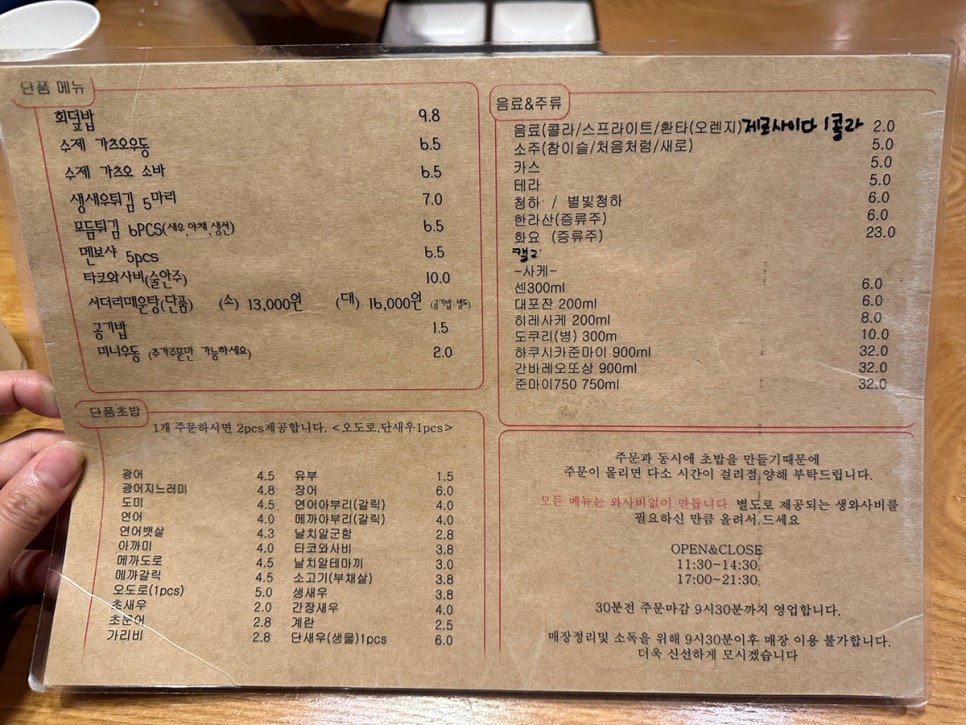 단품 메뉴
회덮밥 9.8
수제 가츠오우동 6.5
수제 가츠오 소바 6.5
생새우튀김 5마리 7.0
모듬튀김 6PCS(새우,야채,생선) 6.5
멘보샤 5pcs 6.5
타코와사비(술안주) 10.0
서더리매운탕(단품) (소) 13,000원 (대) 16,000원 (공기밥 별도)
공기밥 1.5
미니우동 (추가주문만 가능하세요) 2.0
단품초밥
1개 주문하시면 2pcs제공합니다. <오도로,단새우1pcs>
광어 4.5
광어지느러미 4.8
도미 4.5
연어 4.0
연어뱃살 4.3
아까미 4.0
메까도로 4.5
메까갈릭 4.5
오도로(1pcs) 5.0
초새우 2.0
초문어 2.8
가리비 2.8
유부 1.5
장어 6.0
연어아부리(갈릭) 4.0
메까아부리(갈릭) 4.0
날치알군함 2.8
타코와사비 3.8
날치알테마끼 3.0
소고기(부채살) 3.8
생새우 3.8
간장새우 4.0
계란 2.5
단새우(생물)1pcs 6.0
음료&주류
음료(콜라/스프라이트/환타(오렌지) 제로사이다/콜라 2.0
소주(참이슬/처음처럼/새로) 5.0
카스 5.0
테라 5.0
청하 / 별빛청하 6.0
한라산(증류주) 6.0
화요 (증류주) 23.0
-사케-
센300ml 6.0
대포잔 200ml 6.0
히레사케 200ml 8.0
도쿠리(병) 300m 10.0
하쿠시카준마이 900ml 32.0
간바레오또상 900ml 32.0
준마이750 750ml 32.0
주문과 동시에 초밥을 만들기때문에
주문이 몰리면 다소 시간이 걸리점,양해 부탁드립니다.
모든 메뉴는 와사비없이 만듭니다. 별도로 제공되는 생와사비를
필요하신 만큼 올려서 드세요
OPEN&CLOSE
11:30~14:30
17:00~21:30
30분전 주문마감 9시30분까지 영업합니다.
매장정리및 소독을 위해 9시30분이후 매장 이용 불가합니다.
더욱 신선하게 모시겠습니다